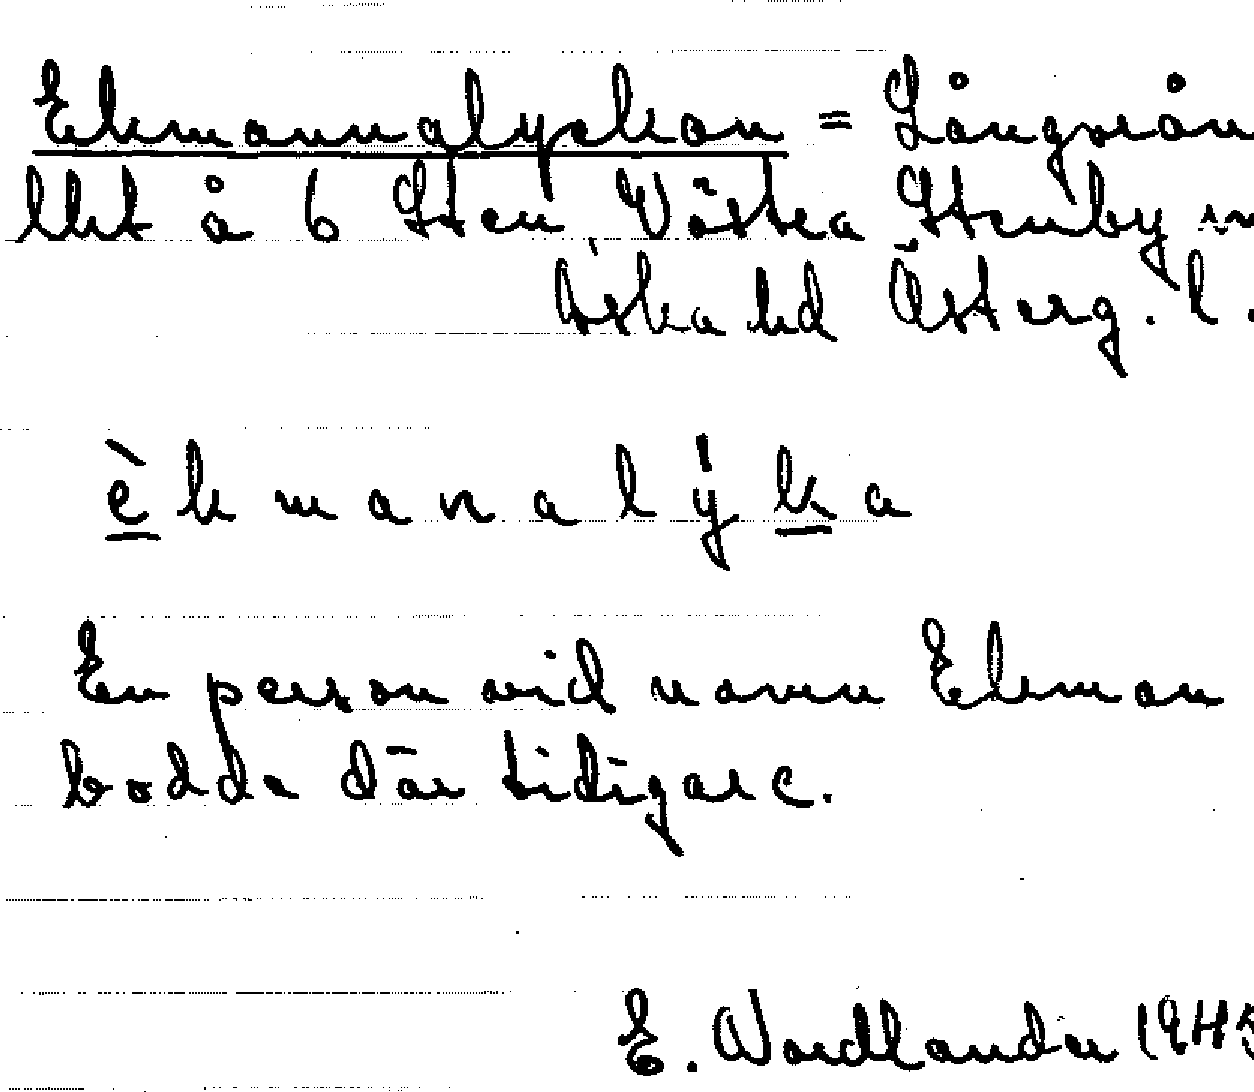 Ekmannalyckan = Långvrån
lht å 6 Sten, Västra Stenby sn
Aska hd Österg. l.
èkmanalýka
En person vid namn Ekman
bodde där tidigare.
E. Nordlander 1945